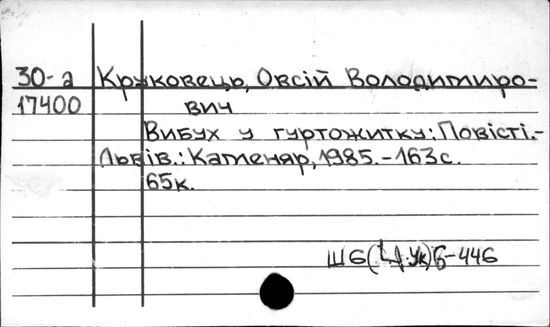 30-а Круковець, Овсій Володимиро-
17400 вич
Вибух у гуртожитку: Повісті.-
Львів.: Каменяр, 1985.-163с.
65к.
Ш6( Ук)6-446